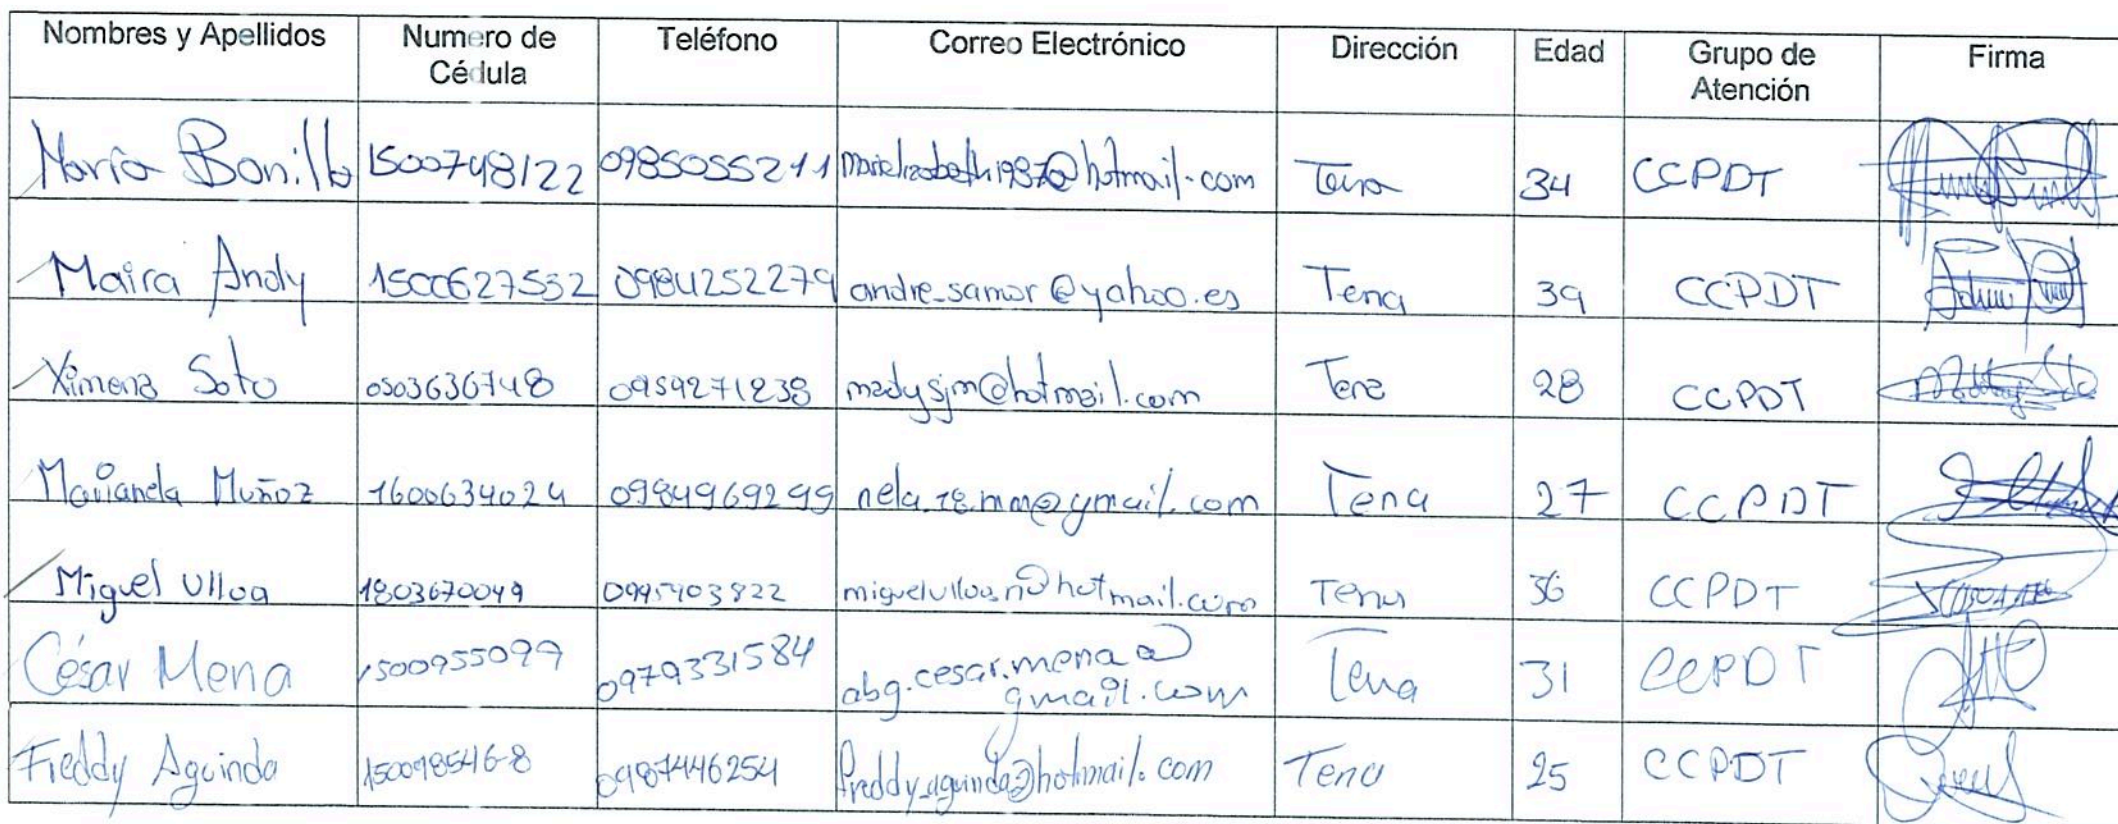 Nombres y Apellidos Numero de Cédula Teléfono Correo Electrónico Dirección Edad Grupo de Atención Firma
María Bonilla 1500748122 0985055211 marielizabeth1987@hotmail.com Tena 34 CCPDT
Maira Andy 1500627532 0984252279 andre_samar@yahoo.es Tena 39 CCPDT
Ximena Soto 0503636748 0959271238 madysjm@hotmail.com Tena 28 CCPDT
Marianela Muñoz 1600634024 0984969299 nela.18.mm@gmail.com Tena 27 CCPDT
Miguel Ulloa 1803670049 0995403822 miguelulloan@hotmail.com Tena 36 CCPDT
César Mena 1500955099 0979331584 abg.cesar.mena@gmail.com Tena 31 CCPDT
Freddy Aguinda 150098546-8 0987446254 freddy_aguinda@hotmail.com Tena 25 CCPDT